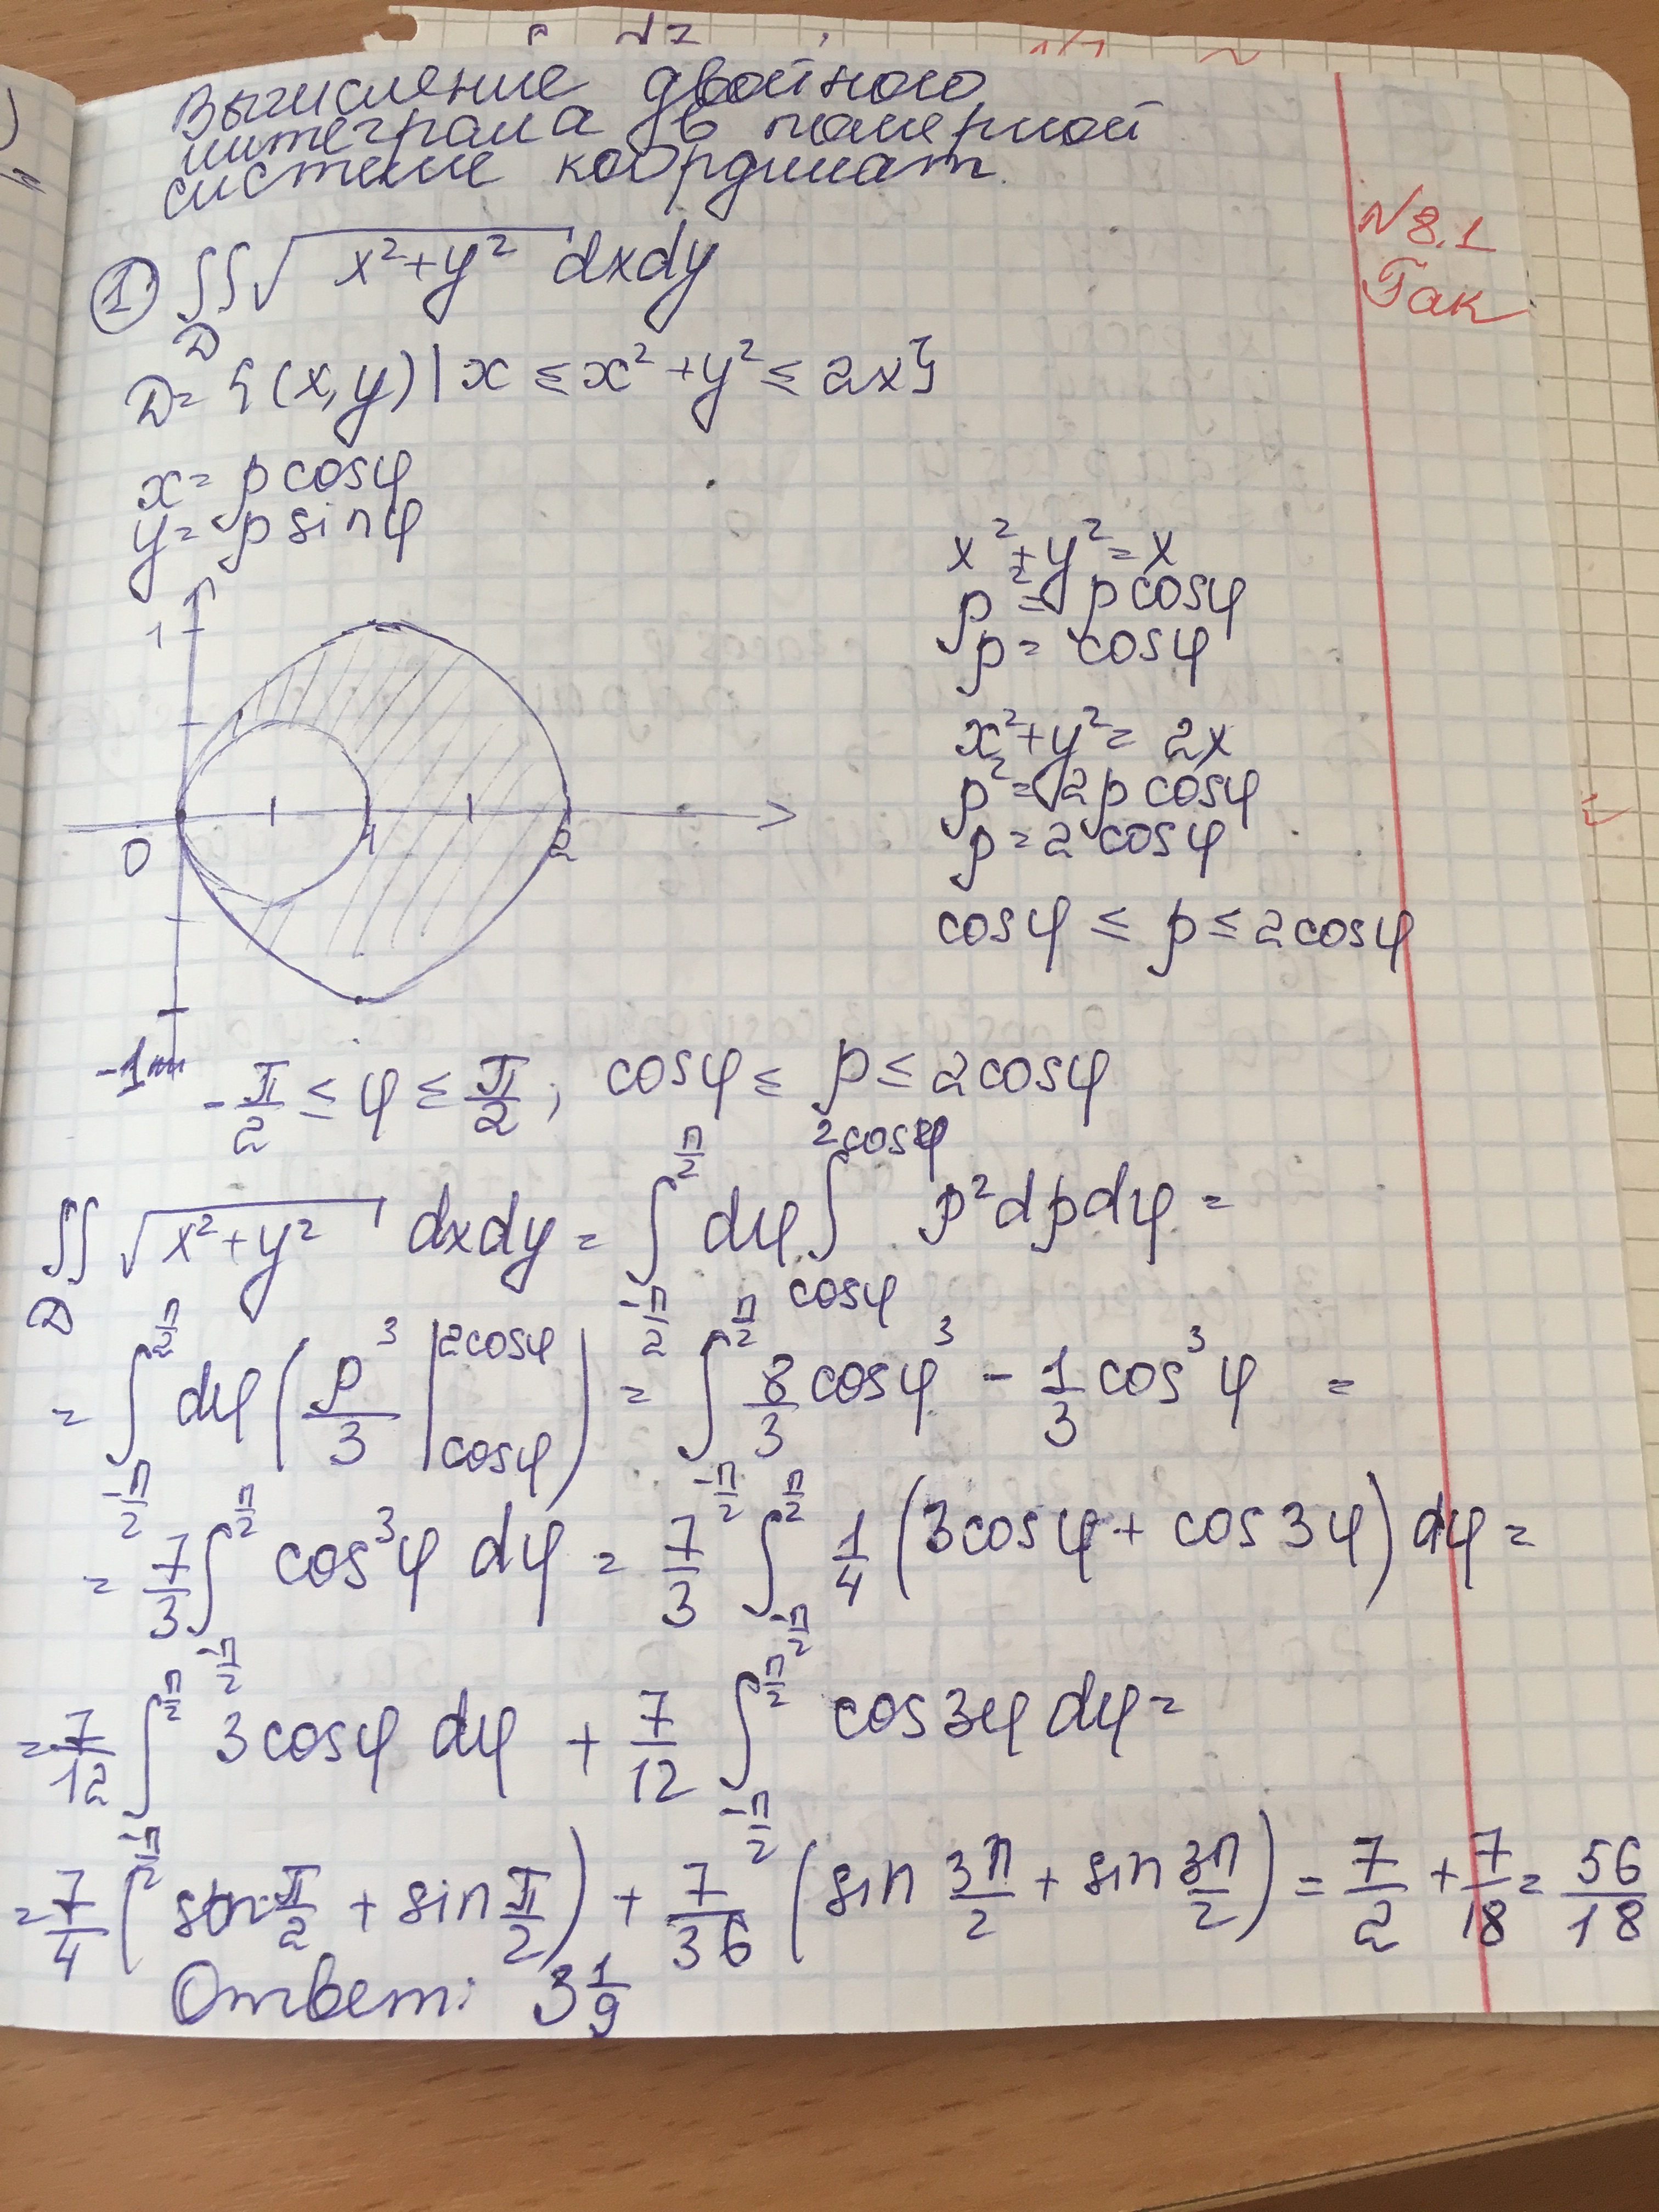 Вычисление двойного
интеграла в полярной
системе координат.
N 8.1
Гак
① ∬ √(x²+y²) dxdy
D
D = {(x,y) | x ≤ x²+y² ≤ 2x}
x = ρ cosφ
y = ρ sinφ
x²+y² = x
ρ² = ρ cosφ
ρ = cosφ
x²+y² = 2x
ρ² = 2ρ cosφ
ρ = 2cosφ
cosφ ≤ ρ ≤ 2cosφ
1
0 1 2
-1
-π/2 ≤ φ ≤ π/2 ; cosφ ≤ ρ ≤ 2cosφ
∬_D √(x²+y²) dxdy = ∫_{-π/2}^{π/2} dφ ∫_{cosφ}^{2cosφ} ρ² dρdφ =
= ∫_{-π/2}^{π/2} dφ (ρ³/3 |_{cosφ}^{2cosφ}) = ∫_{-π/2}^{π/2} 8/3 cosφ³ - 1/3 cos³φ =
= 7/3 ∫_{-π/2}^{π/2} cos³φ dφ = 7/3 ∫_{-π/2}^{π/2} 1/4 (3cosφ + cos3φ) dφ =
= 7/12 ∫_{-π/2}^{π/2} 3cosφ dφ + 7/12 ∫_{-π/2}^{π/2} cos3φ dφ =
= 7/4 (sin π/2 + sin π/2) + 7/36 (sin 3π/2 + sin 3π/2) = 7/2 + 7/18 = 56/18
Ответ: 3 1/9